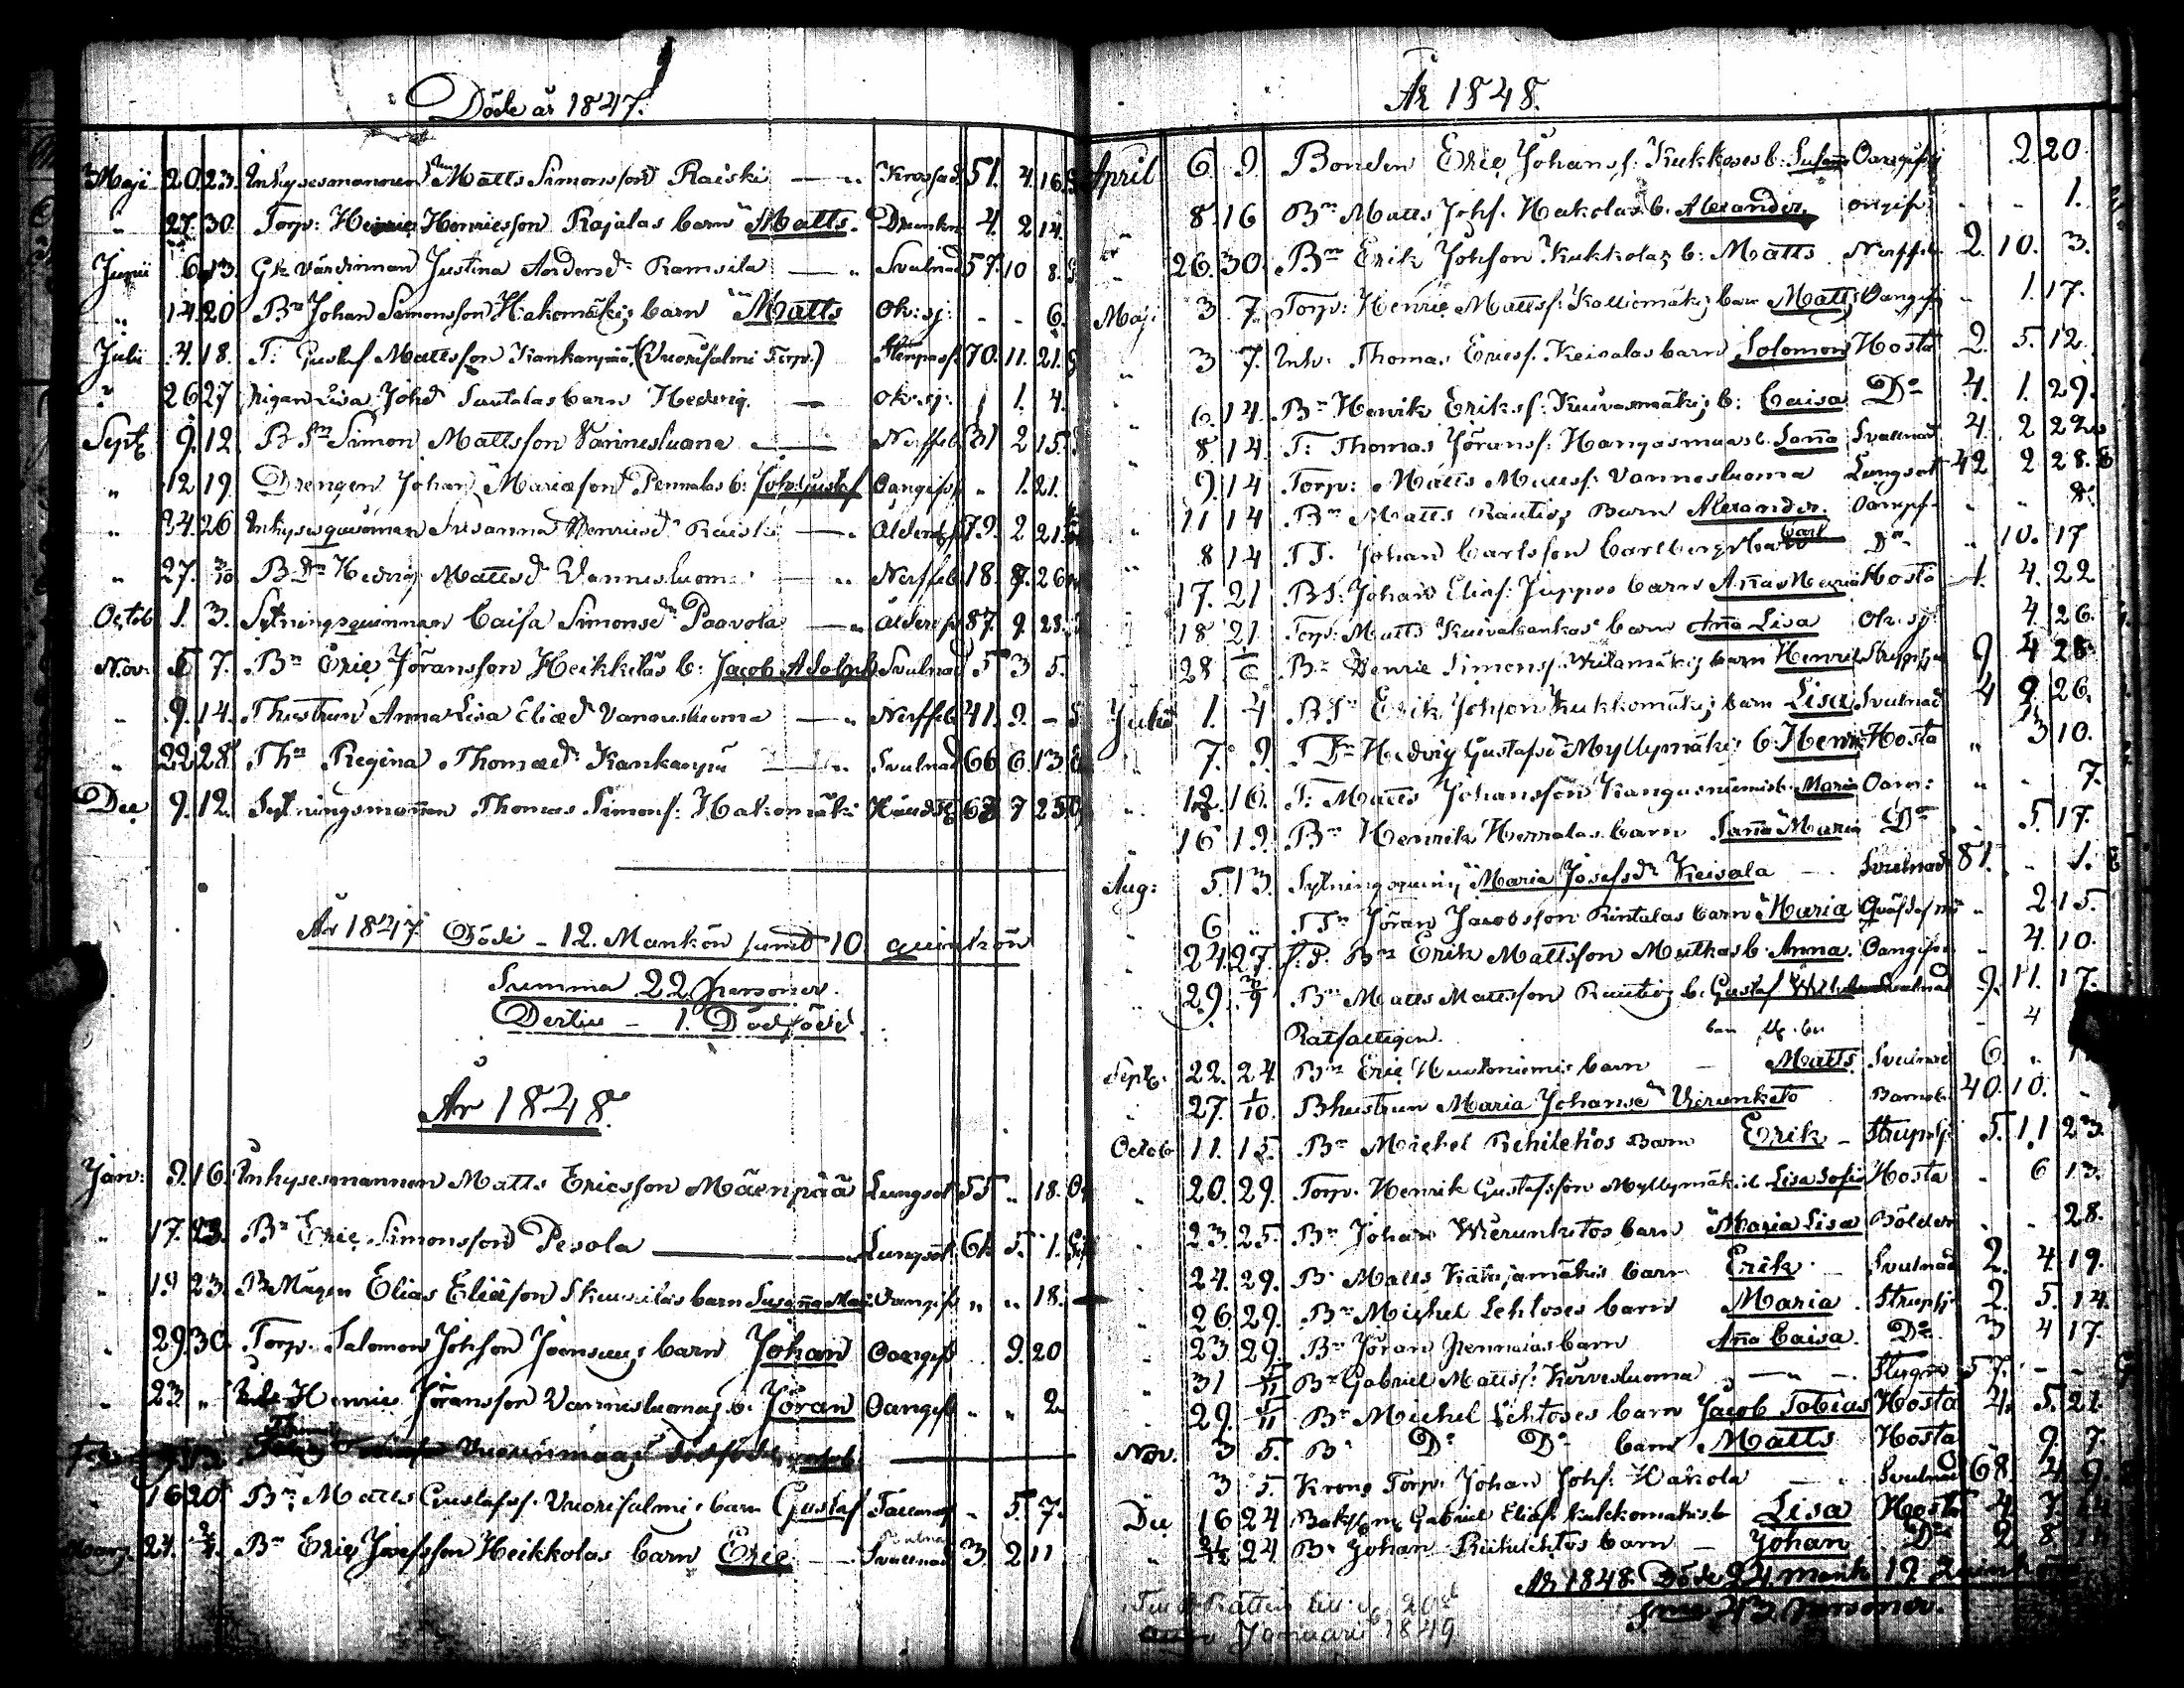 Döde år 1847.
Maji 20 23. Inhysesmannen Matts Simonsson Raiski Krossad 51. 4. 16
" 27. 30. Torp: Henric Henricsson Rajalas barn Matts. Drunkn 4. 2 14.
Junii 6 13. Gl: värdinnan Justina Andersdr Ramsila Svulnad 57. 10 8.
" 14. 20 Bn Johan Simonsson Hakomäkis barn Matts Ok: sj: - - 6.
Julii 4. 18. T: Gustaf Mattsson Kankanpää (Vuorisalmi Torp.) 70. 11. 21.
" 26 27 Pigan Lisa Johd Santalas barn Hedvig. Ok: sj: 1. 4.
Sept 9. 12 BSn Simon Mattsson Vannesluoma Nerffeb 31 2 15.
" 12 19 Drengen Johan Mariæson Pennalas b: Joh: Gustaf Oangifvn " 1. 21.
" 24. 26 Inhysesquinnan Susanna Henricsdr Raiski Alderd 79. 2 21
" 27. 3/10 BDr Hedvig Mattsdr Vannesluoma Nerffeb 18. 8. 26
Octob 1. 3. Sytningsquinnan Caisa Simonsdr Paavola Alderd 87. 9. 28.
Nov: 5 7. Bn Eric Jöransson Heikkiläs b: Jacob Adolph Svulnad 5 3 5.
" 9. 14. Thustrun Anna Lisa Eliædr Vannesluoma Nerffeb 41. 9. -
" 22. 28. Thn Regina Thomædr Kankanpää Svulnad 66 6. 13.
Dec 9. 12. Sytningsmannen Thomas Simonss: Hakomäki 67 7 25
År 1847 Döde - 12. Mankön samt 10. quinkön
Summa 22 personer.
Dertill - 1. Dödfödd.
År 1848.
Jan: 9. 16. Inhysesmannen Matts Ericsson Mäenpää Lungsot 55 " 18.
" 17. 23. Bn Eric Simonsson Pesola Lungsot 61. 5. 1.
" 19 23. BMågen Elias Eliæson Skuusilas barn Susanna Mar: Oangifv " " 18.
" 29. 30. Torp. Salomon Johsson Joensuus barn Johan Oangifv 9. 20
" 23 " Henric Jöransson Vannesluomas b: Jöran Oangifv " " 2
Febr Vuorinmaas dödfödt
" 16 20 Bn Matts Gustafss: Vuorisalmis barn Gustaf - 5. 7.
Mars 27. 2/4. Bn Eric Josefsson Heikkolas barn Eric Svullnad 3. 2 11
År 1848.
April 6 9. Bonden Eric Johanss: Kukkoses b: Susann Oangifvn 2 20.
8. 16 Bn Matts Johs. Hakolas b. Alexander Oangifv " " 1.
26. 30. Bn Erik Johson Kukkolas b: Matts Nerffeb 2. 10. 3.
Maj: 3 7. Torp: Henric Mattss: Kalliomäkis barn Matts Oangifv 1. 17.
" 3 7. Inh: Thomas Ericss. Keisalas barn Solomon Hosta 2. 5. 12.
" 6 14. Bn Henrik Erikss: Kuivasmäkis b: Caisa Do 4. 1. 29.
" 8 14. T: Thomas Jöranss: Hangasmaas b. Sanna Svullnad 4. 2 22
9. 14 Torp: Matts Mattss: Vannesluoma Lungsot 42 2 28.
" 11 14 Bn Matts Rautios Barn Alexander. Oangifv " " 8.
" 8 14 TS. Johan Carlsson Carlbergs barn Carl Do " 10. 17
17. 21 BS: Johan Elias: Juppos barn Anna Maria Hosta 1. 4. 22
18 21 Torp: Matts Kuivakankas barn Anna Lisa Ok: sj: 4. 26.
28. Bn Henric Simonss: barn Henric Strypsju 9 4 28.
Julii 1. 4 BSn Erik Johson Kukkomäkis barn Lisa Svulnad 4 9. 26.
" 7. 9. TDr Hedvig Gustafsdr Myllymäkis b: Henric Hosta " 3 10.
12. 16. T: Matts Johansson Kangasniemis b: Maria Oann: " " 7.
" 16 19. Bn Henrik Herralas barn Sanna Maria Do 5. 17.
Aug: 5. 13. Sytningsquin: Maria Josefsdr Keisala Svulnad 81. " 1.
6 " TSn Jöran Jacobsson Rintalas barn Maria " 2. 15.
24. 27. Bn Erik Mattsson Mutkas b. Anna. Oangifven 4. 10.
" 29. 3/9 Bn Matts Mattsson Rautios b. Gustaf Wilh Svulnad 9. 11. 17.
Ratfattigen. 4
Sept: 22. 24. Bn Eric Huntoniemis barn Matts. Svulnad 6. "
27. 1/10. Bhustrun Maria Johansdr Vierunketo Barnsb 40. 10. -
Octob 11. 15. Bn Michel Rehilehtos Barn Erik Strupsj: 5. 11 23.
" 20. 29. Torp. Henrik Gustafsson Myllymäkis b. Lisa Sofia Hosta - 6 13.
23. 25. Bn Johan Wierunketos barn Maria Lisa Bölder " " 28.
24. 29. Bn Matts Katajamäkis barn Erik Svulnad 2. 4. 19.
" 26 29. Bn Michel Lehtoses barn Maria Strupsj 2. 5. 14.
23 29. Bn Jöran Pennalas barn Anna Caisa. Do 3 4 17.
" 31 5/11 Bn Gabriel Mattss: Kervesluoma Slagn 57. - -
" 29. 5/11 Bn Michel Lehtoses barn Jacob Tobias Hosta 4. 5. 21.
Nov. 3 5. Bn Do Do barn Matts Hosta 9. 7.
3 5. Krono Torp: Johan Johs: Hakola Svulnad 68. 4. 9.
Dec 16 24 Gabriel Eliass: Kukkomäkis b Lisa Hosta 4. 7.
24 Bn Johan Riihilehtos barn Johan Do 2 8
År 1848. Döde 24 mank 19 Quinkön
43 personer.
Januari 1849